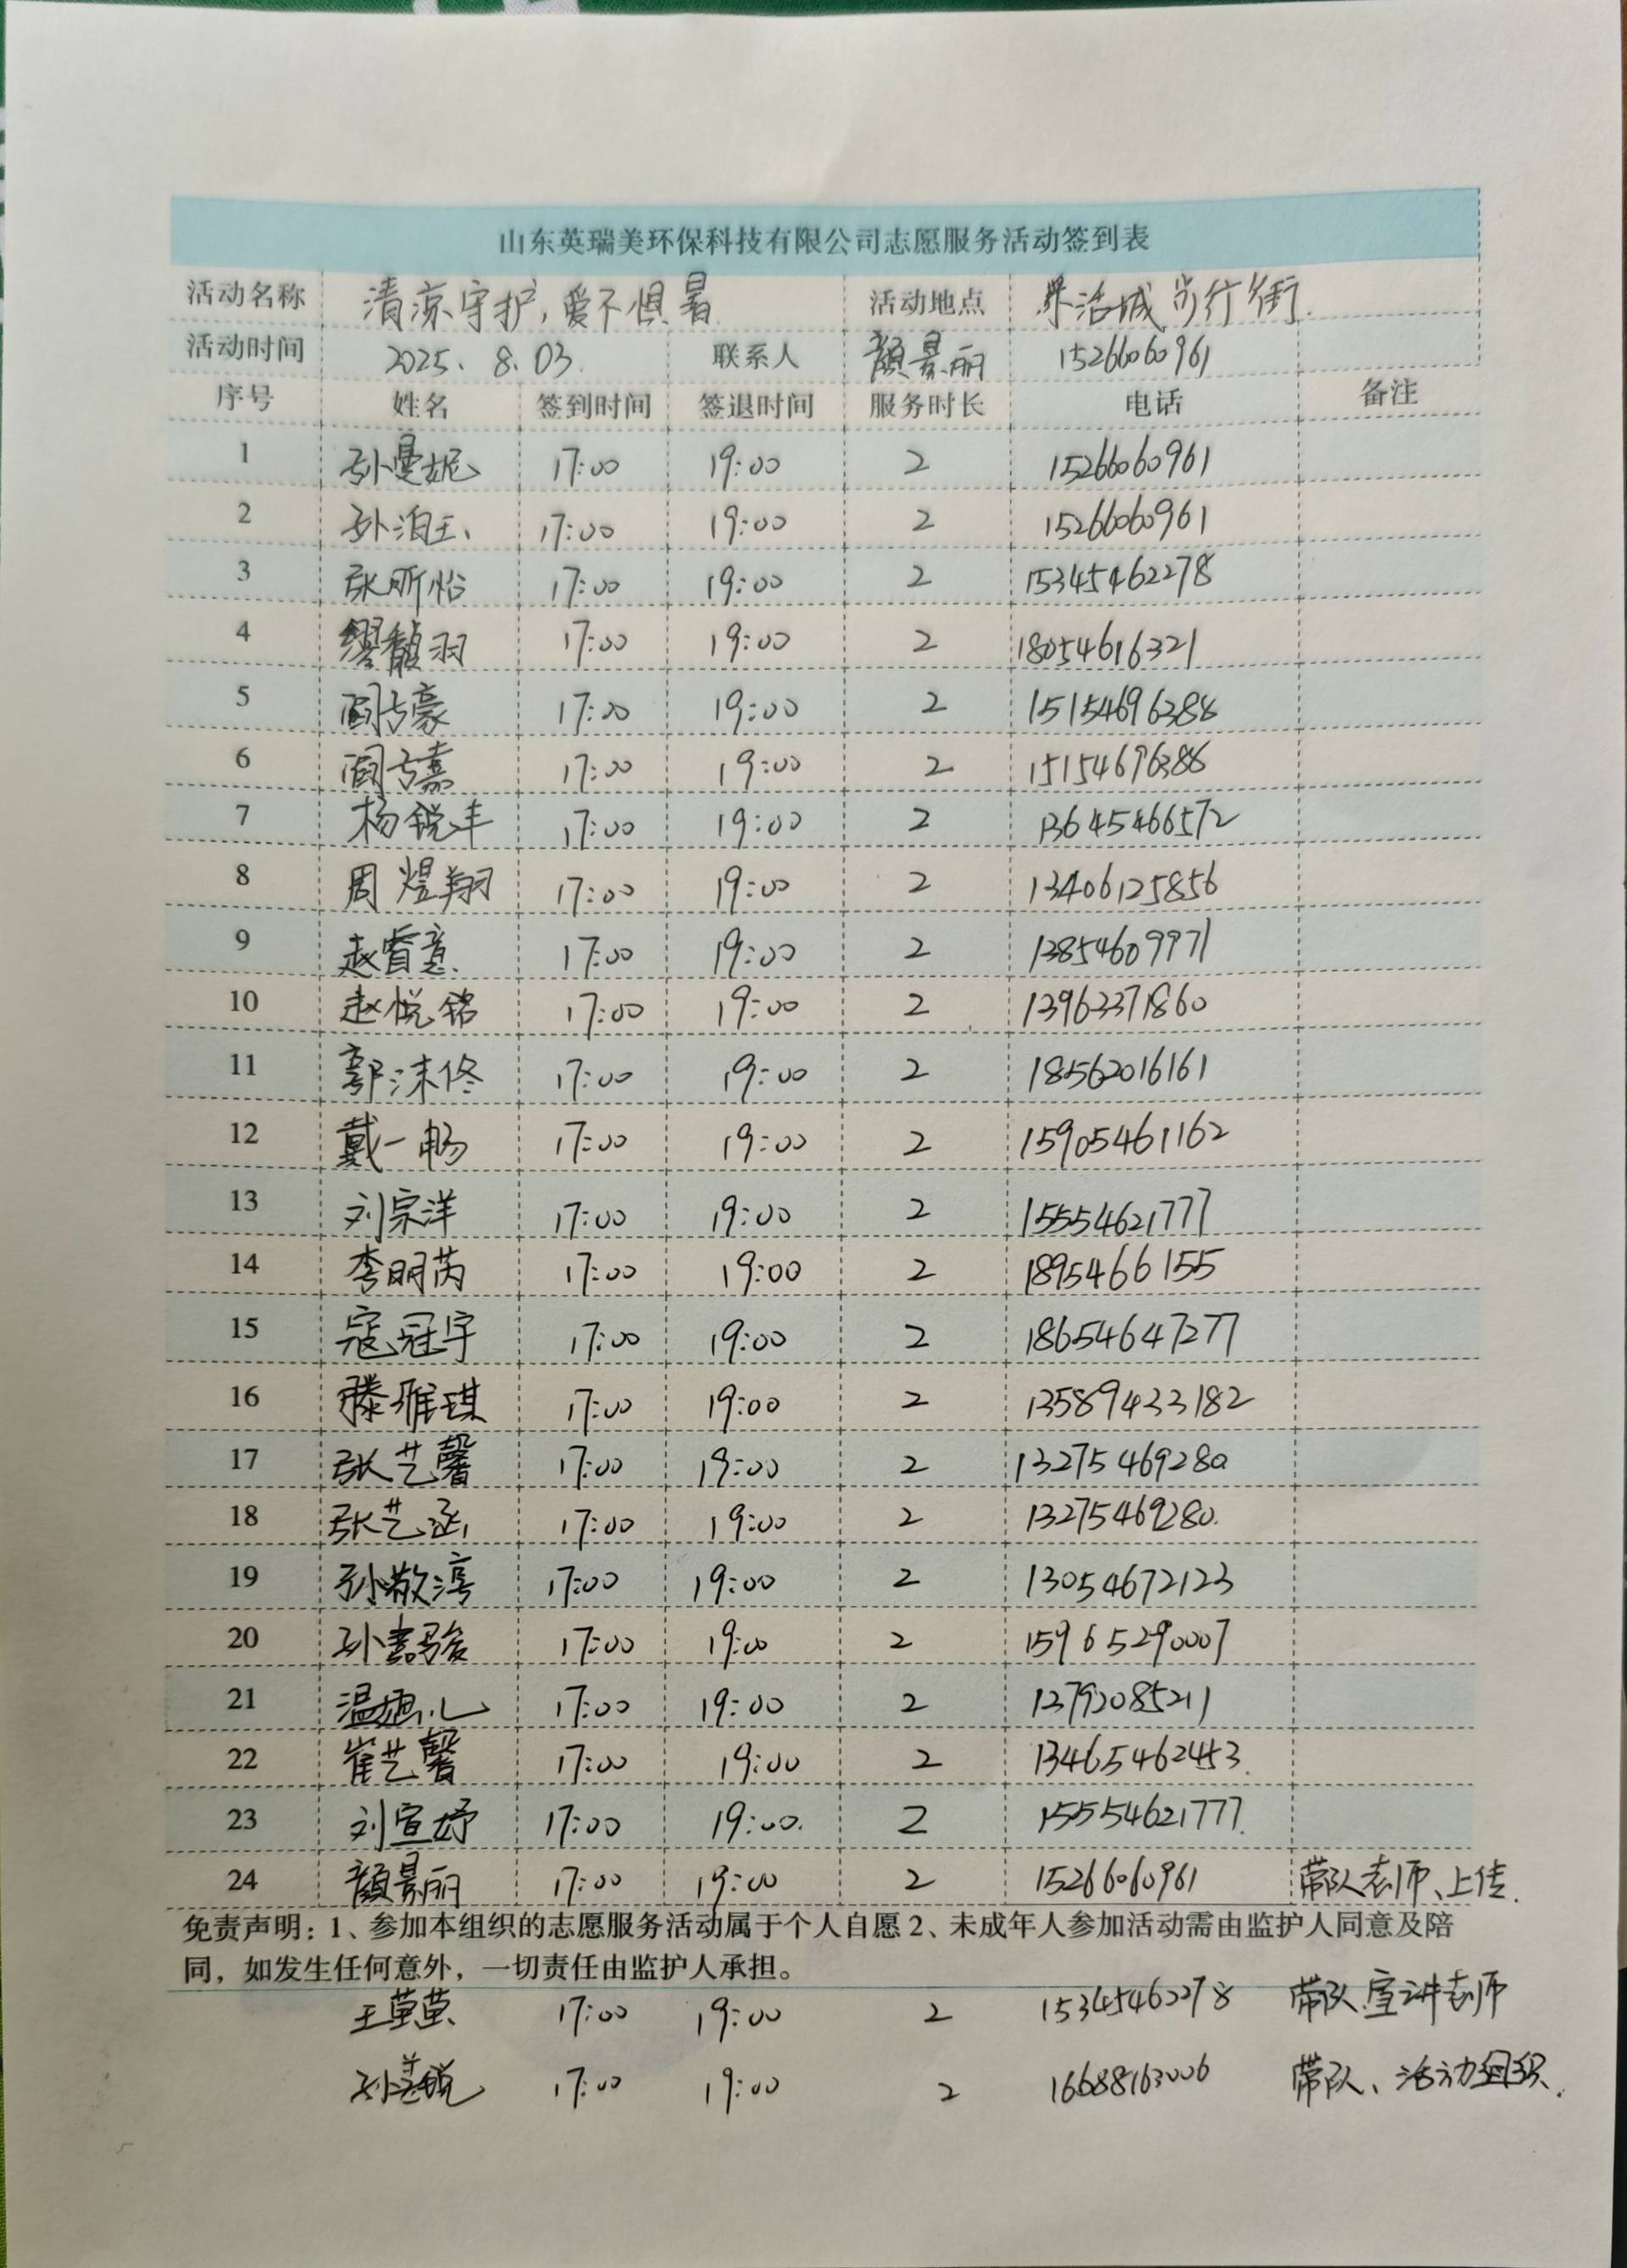 山东英瑞美环保科技有限公司志愿服务活动签到表
活动名称 清凉守护,爱不惧暑 活动地点 乐活城步行街.
活动时间 2025. 8.03. 联系人 颜景丽 15266060961
序号 姓名 签到时间 签退时间 服务时长 电话 备注
1 孙曼妮 17:00 19:00 2 15266060961
2 孙泊王 17:00 19:00 2 15266060961
3 张昕怡 17:00 19:00 2 15345462278
4 缪馥羽 17:00 19:00 2 18054616321
5 阎古豪 17:00 19:00 2 15154696388
6 阎古嘉 17:00 19:00 2 15154696388
7 杨锐丰 17:00 19:00 2 13645466572
8 周煜翔 17:00 19:00 2 13406125856
9 赵睿意 17:00 19:00 2 13854609971
10 赵悦铭 17:00 19:00 2 13963371860
11 郭沫佟 17:00 19:00 2 18562016161
12 戴一畅 17:00 19:00 2 15905461162
13 刘宗洋 17:00 19:00 2 15554621777
14 李明芮 17:00 19:00 2 1895466155
15 寇冠宇 17:00 19:00 2 18654647277
16 滕雅琪 17:00 19:00 2 13589433182
17 张艺馨 17:00 19:00 2 13275469280
18 张艺涵 17:00 19:00 2 13275469280.
19 孙敬淳 17:00 19:00 2 13054672123
20 孙嘉骏 17:00 19:00 2 15965290007
21 17:00 19:00 2 13792085211
22 崔艺馨 17:00 19:00 2 13465462453.
23 刘宣妤 17:00 19:00. 2 15554621777.
24 颜景丽 17:00 19:00 2 15266060961 带队老师、上传.
免责声明：1、参加本组织的志愿服务活动属于个人自愿 2、未成年人参加活动需由监护人同意及陪
同，如发生任何意外，一切责任由监护人承担。
王苹苹 17:00 19:00 2 15345462278 带队宣讲老师
孙善锐 17:00 19:00 2 16688163006 带队、活动组织.